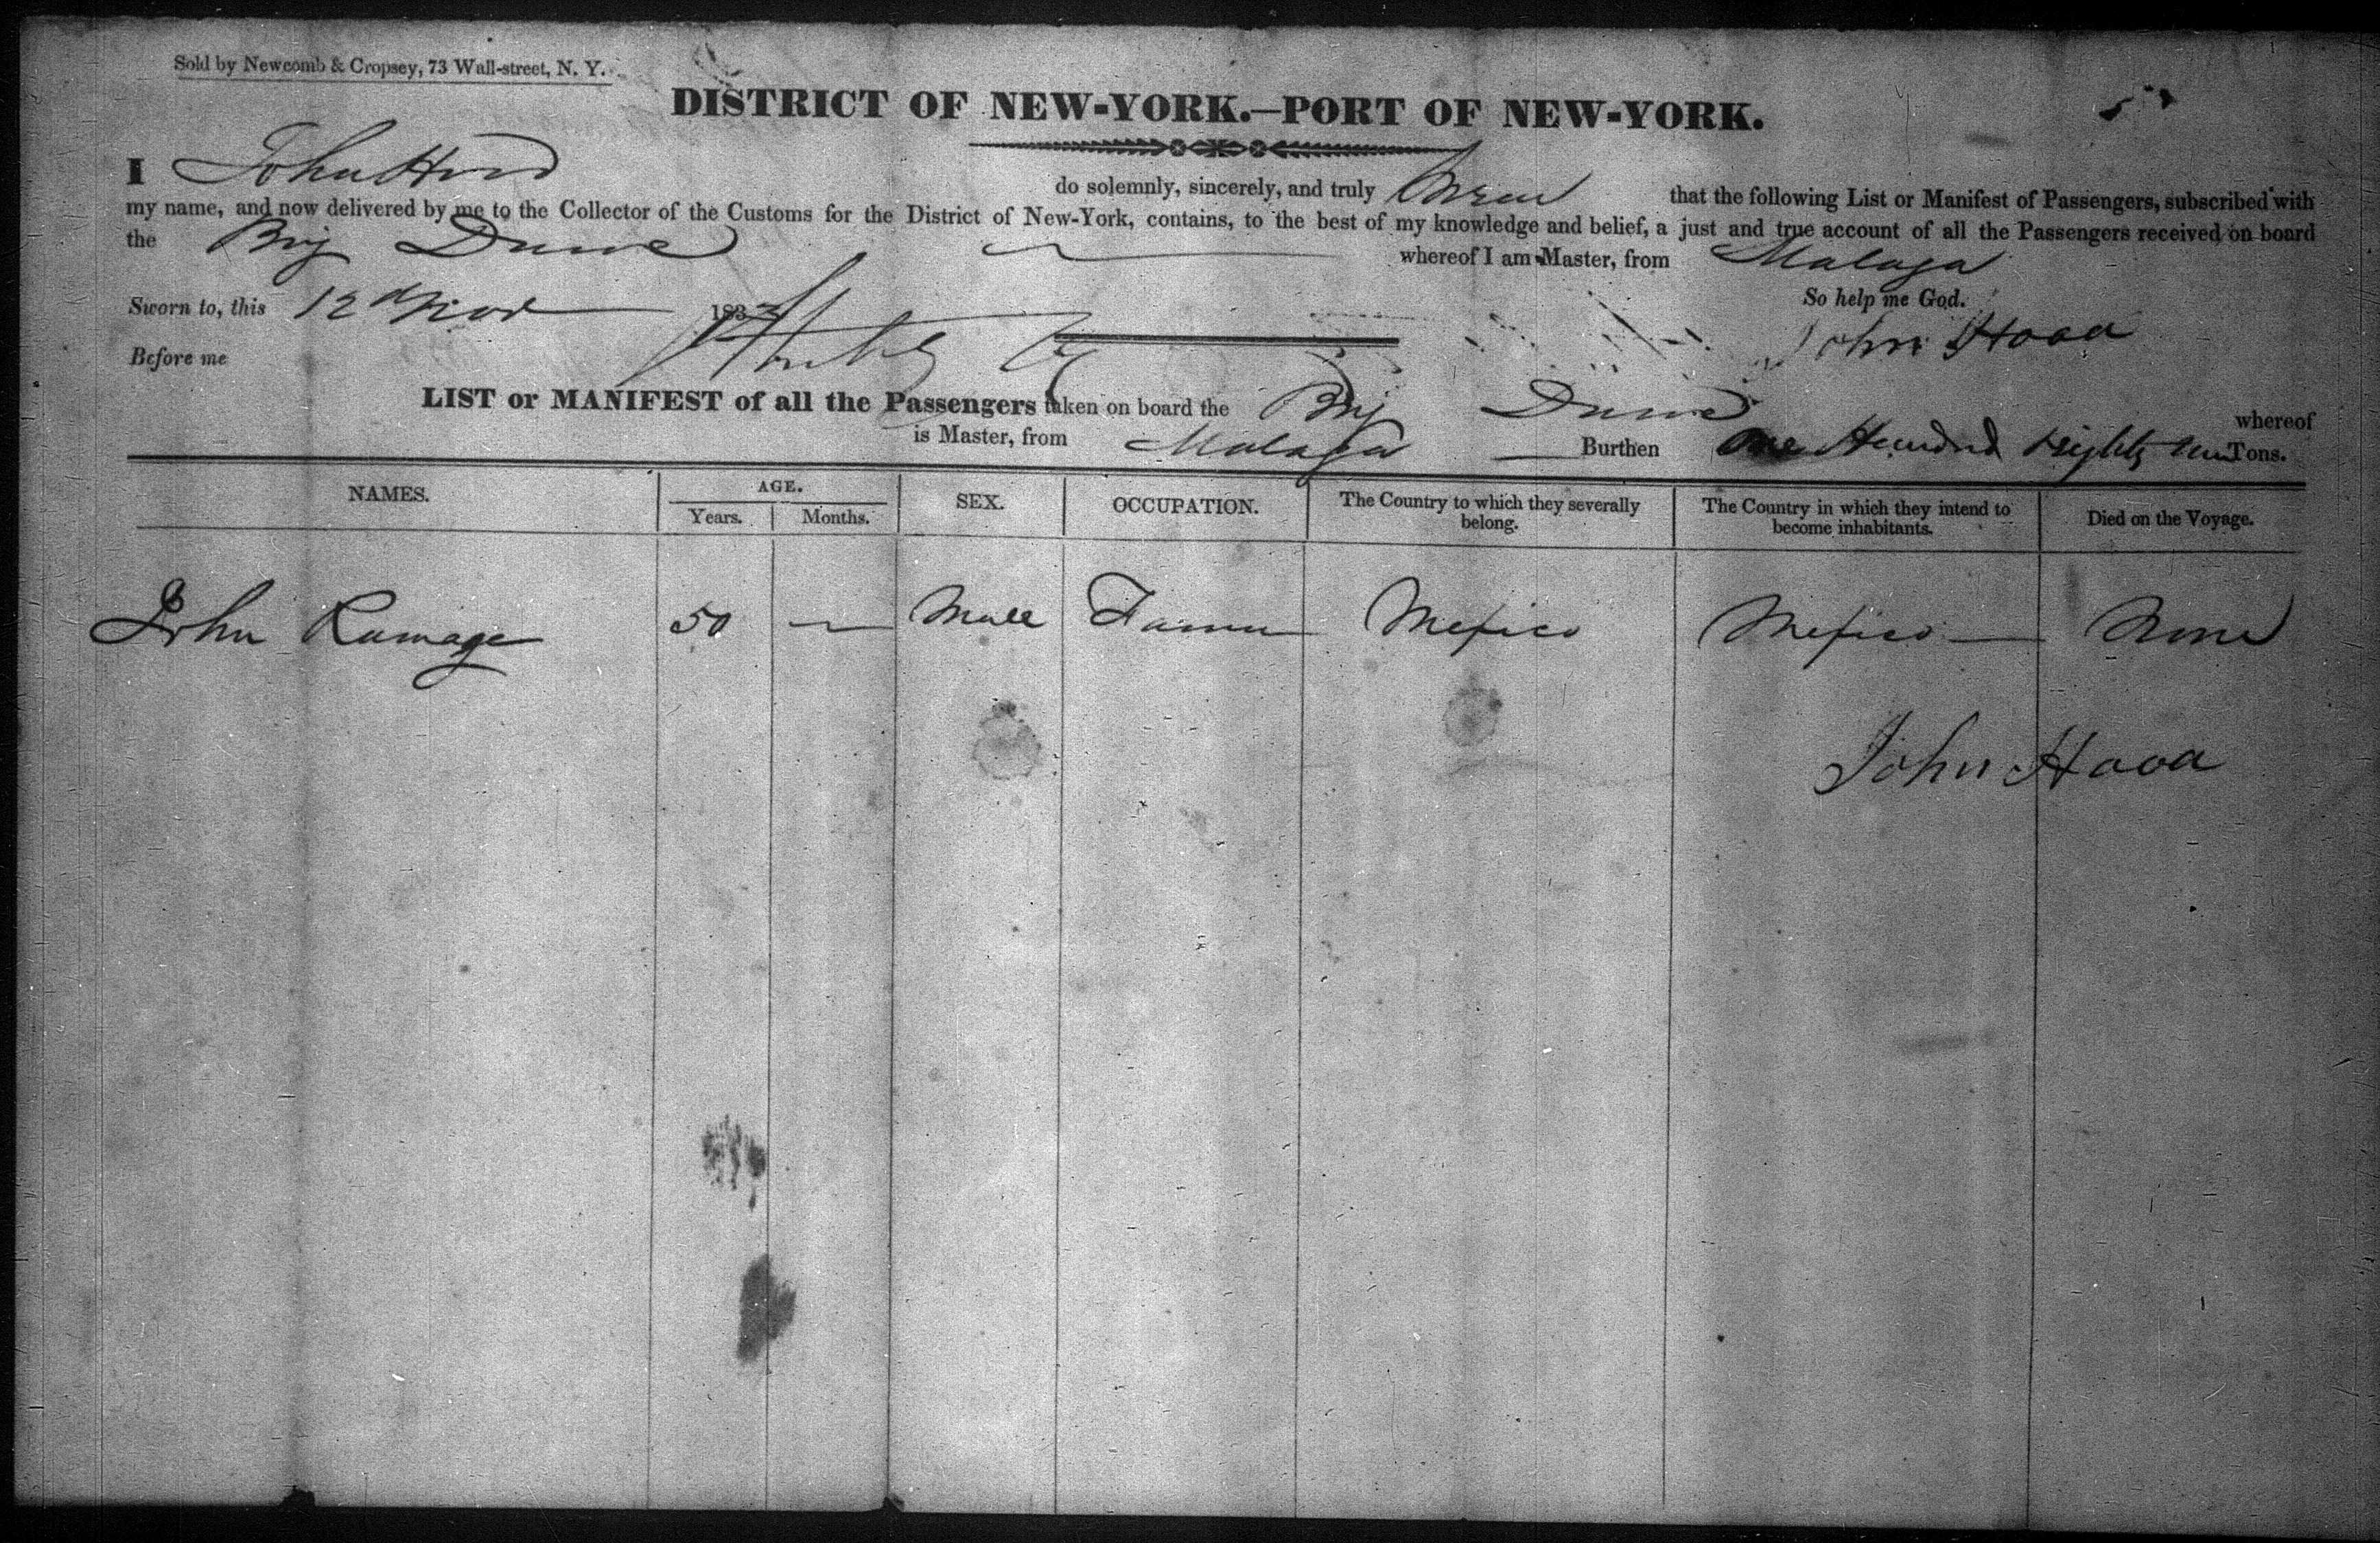 Sold by Newcomb & Cropsey, 73 Wall-street, N. Y.
DISTRICT OF NEW-YORK.—PORT OF NEW-YORK.
I John Hood do solemnly, sincerely, and truly that the following List or Manifest of Passengers, subscribed with
my name, and now delivered by me to the Collector of the Customs for the District of New-York, contains, to the best of my knowledge and belief, a just and true account of all the Passengers received on board
the Brig whereof I am Master, from Malaga
So help me God.
Sworn to, this 12 Nov 183
John Hood
Before me
LIST or MANIFEST of all the Passengers taken on board the Brig whereof
is Master, from Malaga Burthen One Hundred Eighty Tons.
NAMES. AGE. Years. Months. SEX. OCCUPATION. The Country to which they severally belong. The Country in which they intend to become inhabitants. Died on the Voyage.
John Ramage 50 — Male Farmer Mexico Mexico — None
John Hood